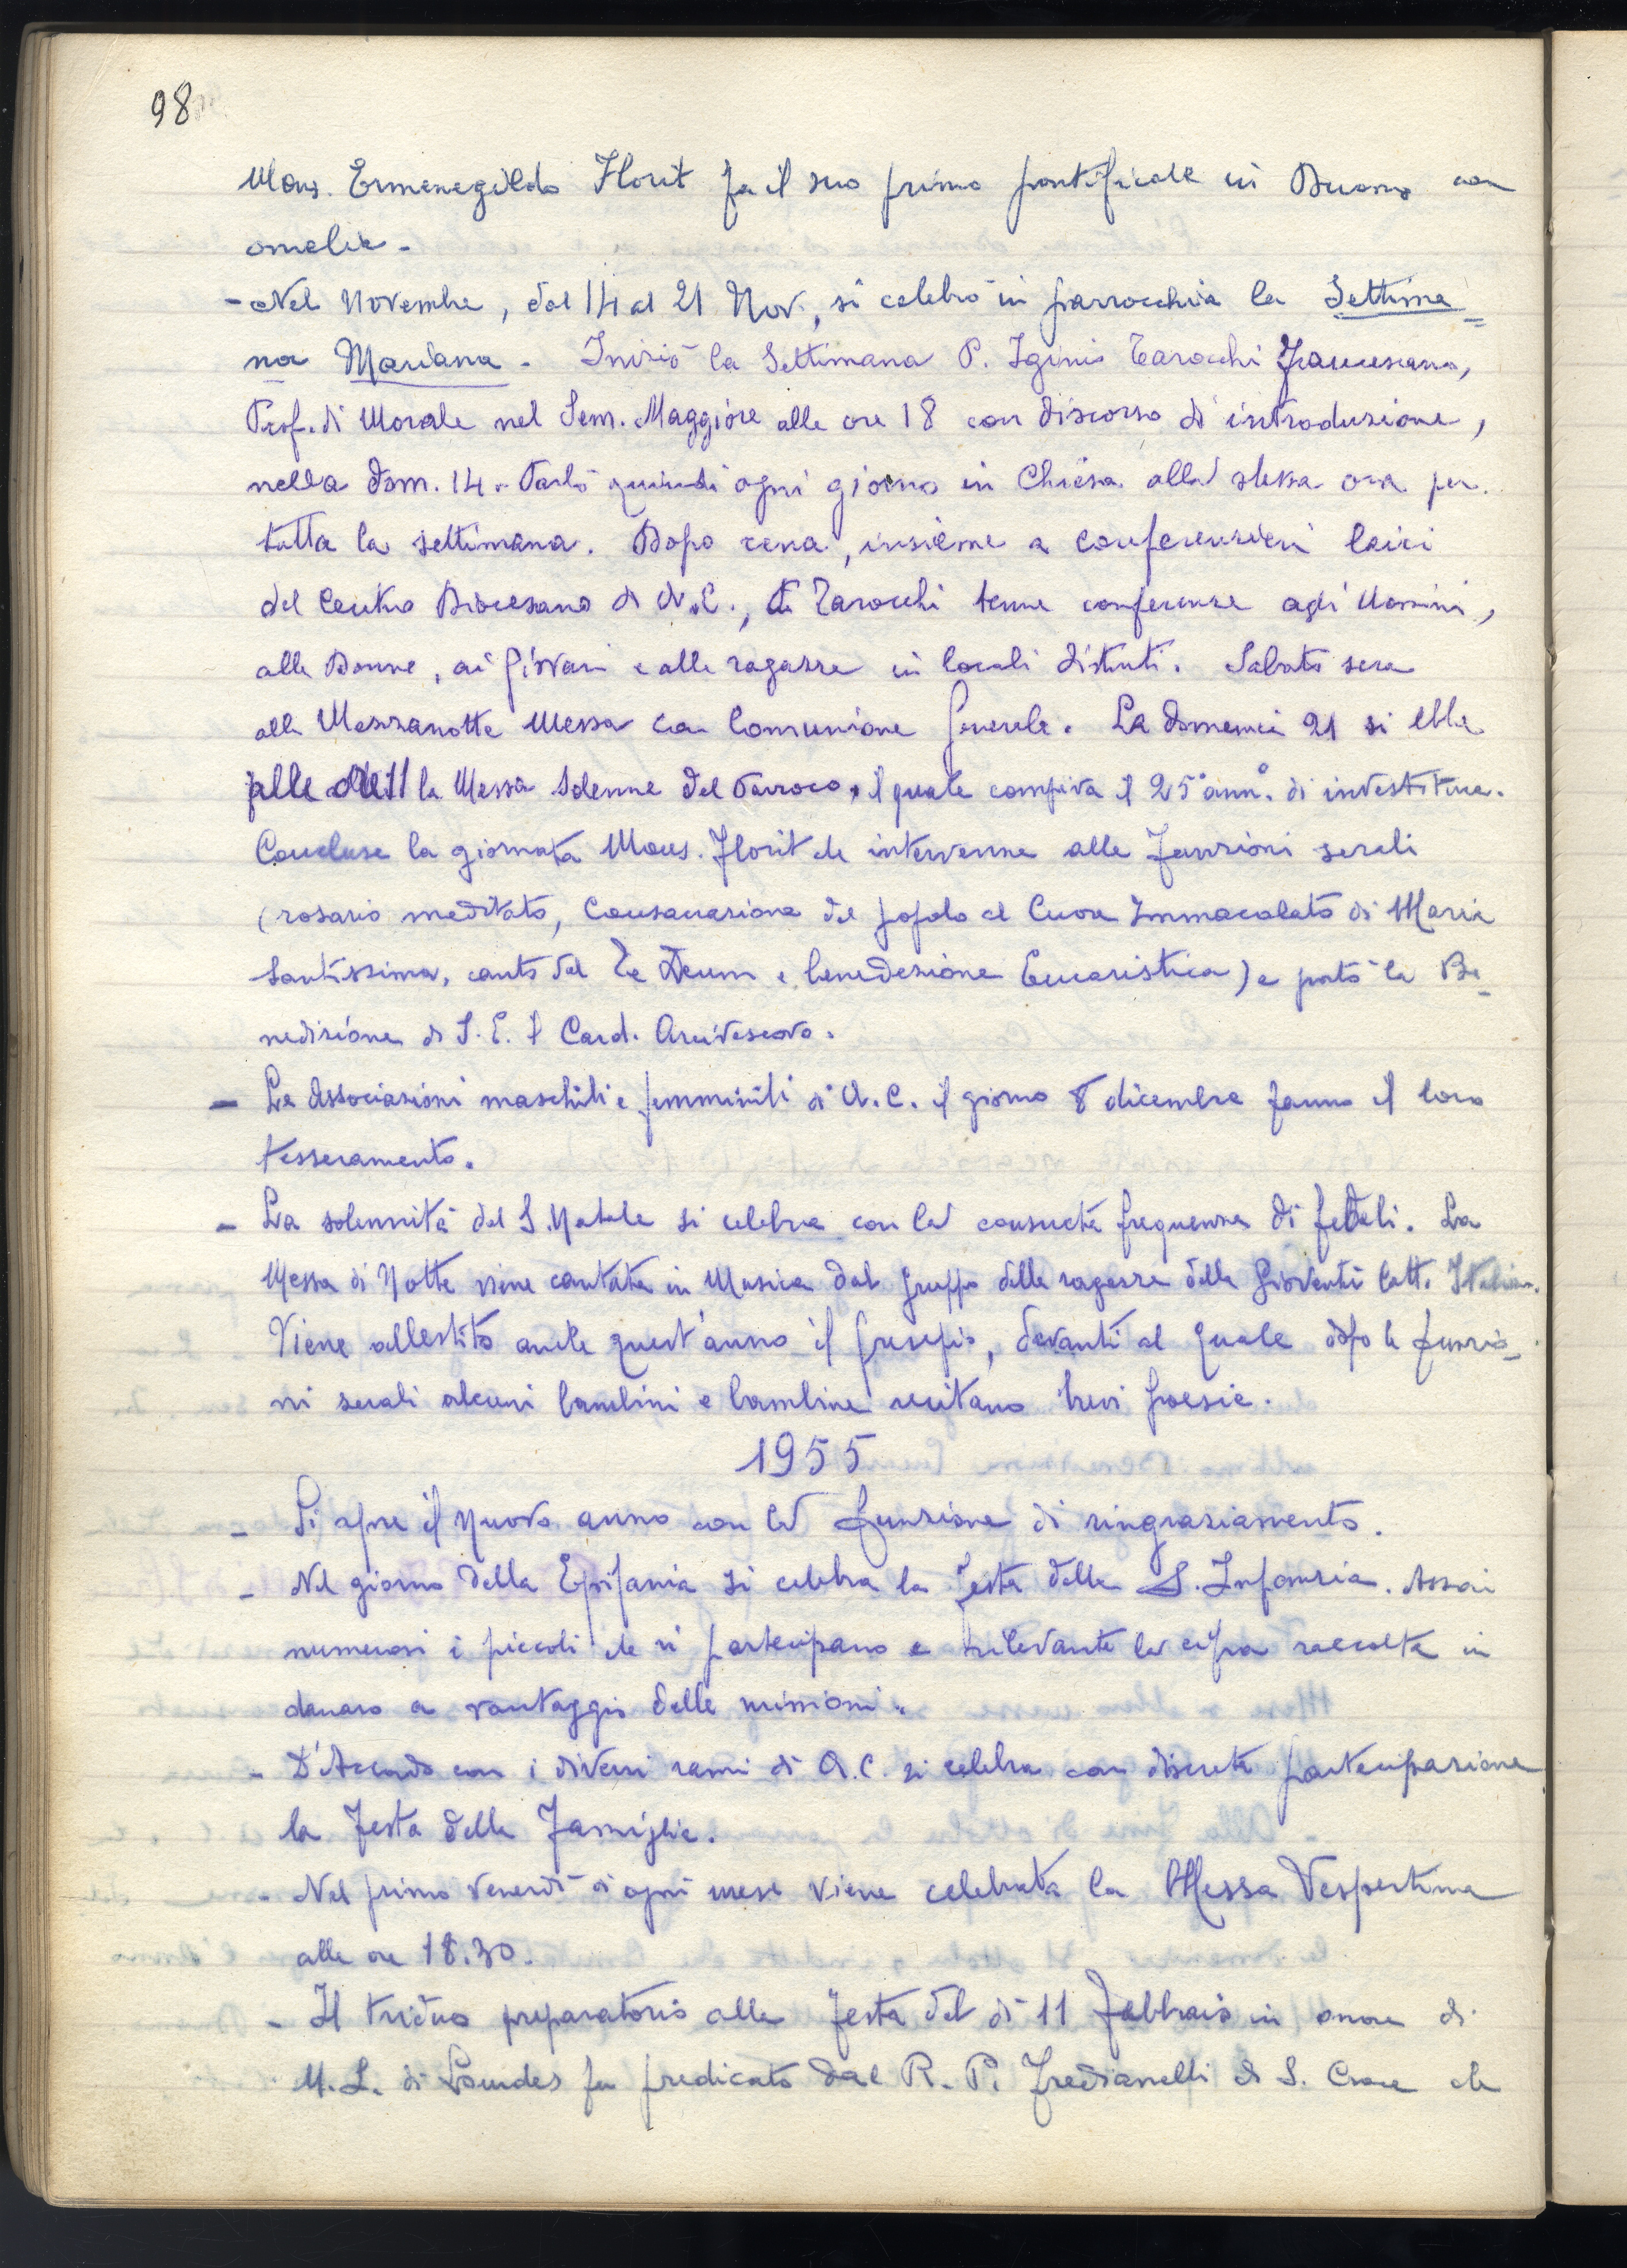 98
Mons. Ermenegildo Florit fa il suo primo pontificale in Duomo con
omelia -
- Nel Novembre, dal 14 al 21 Nov., si celebrò in parrocchia la Settima=
na Mariana - Iniziò la Settimana P. Iginio Tarocchi Francescano,
Prof. di Morale nel Sem. Maggiore alle ore 18 con discorso d'introduzione,
nella dom. 14 - Parlò quindi ogni giorno in Chiesa alla stessa ora per
tutta la settimana. Dopo cena, insieme a conferenzieri laici
del Centro Diocesano di A.C., Tarocchi tenne conferenze agli Uomini,
alle Donne, ai giovani e alle ragazze in locali distinti. Sabato sera
alla Mezzanotte Messa con Comunione generale. La domenica 21 si ebbe
alle ore 11 la Messa Solenne del Parroco, il quale compiva il 25° ann.° di investitura.
Concluse la giornata Mons. Florit che intervenne alle Funzioni serali
(rosario meditato, Consacrazione del popolo al Cuore Immacolato di Maria
Santissima, canto del Te Deum e benedizione Eucaristica) e portò la Be_
nedizione di S. E. il Card. Arcivescovo.
- Le Associazioni maschili e femminili di A.C. il giorno 8 dicembre fanno il loro
tesseramento.
- La solennità del S. Natale si celebra con la consueta frequenza di fedeli. La
Messa di Notte viene cantata in Musica dal gruppo delle ragazze della Gioventù Catt. Italiana.
Viene allestito anche quest'anno il presepio, davanti al quale dopo le funzio_
ni serali alcuni bambini e bambine recitano brevi poesie.
1955
- Si apre il nuovo anno con la funzione di ringraziamento.
- Nel giorno della Epifania si celebra la festa della S. Infanzia. Assai
numerosi i piccoli che vi partecipano e rilevante la cifra raccolta in
danaro a vantaggio delle missioni.
- D'Accordo con i diversi rami di A.C. si celebra con discreta partecipazione
la Festa della Famiglia.
- Nel primo venerdì di ogni mese viene celebrata la Messa Vespertina
alle ore 18.30.
- Il triduo preparatorio alla festa del dì 11 Febbraio in onore di
N.S. di Lourdes fu predicato dal R. P. Fredianelli di S. Croce che